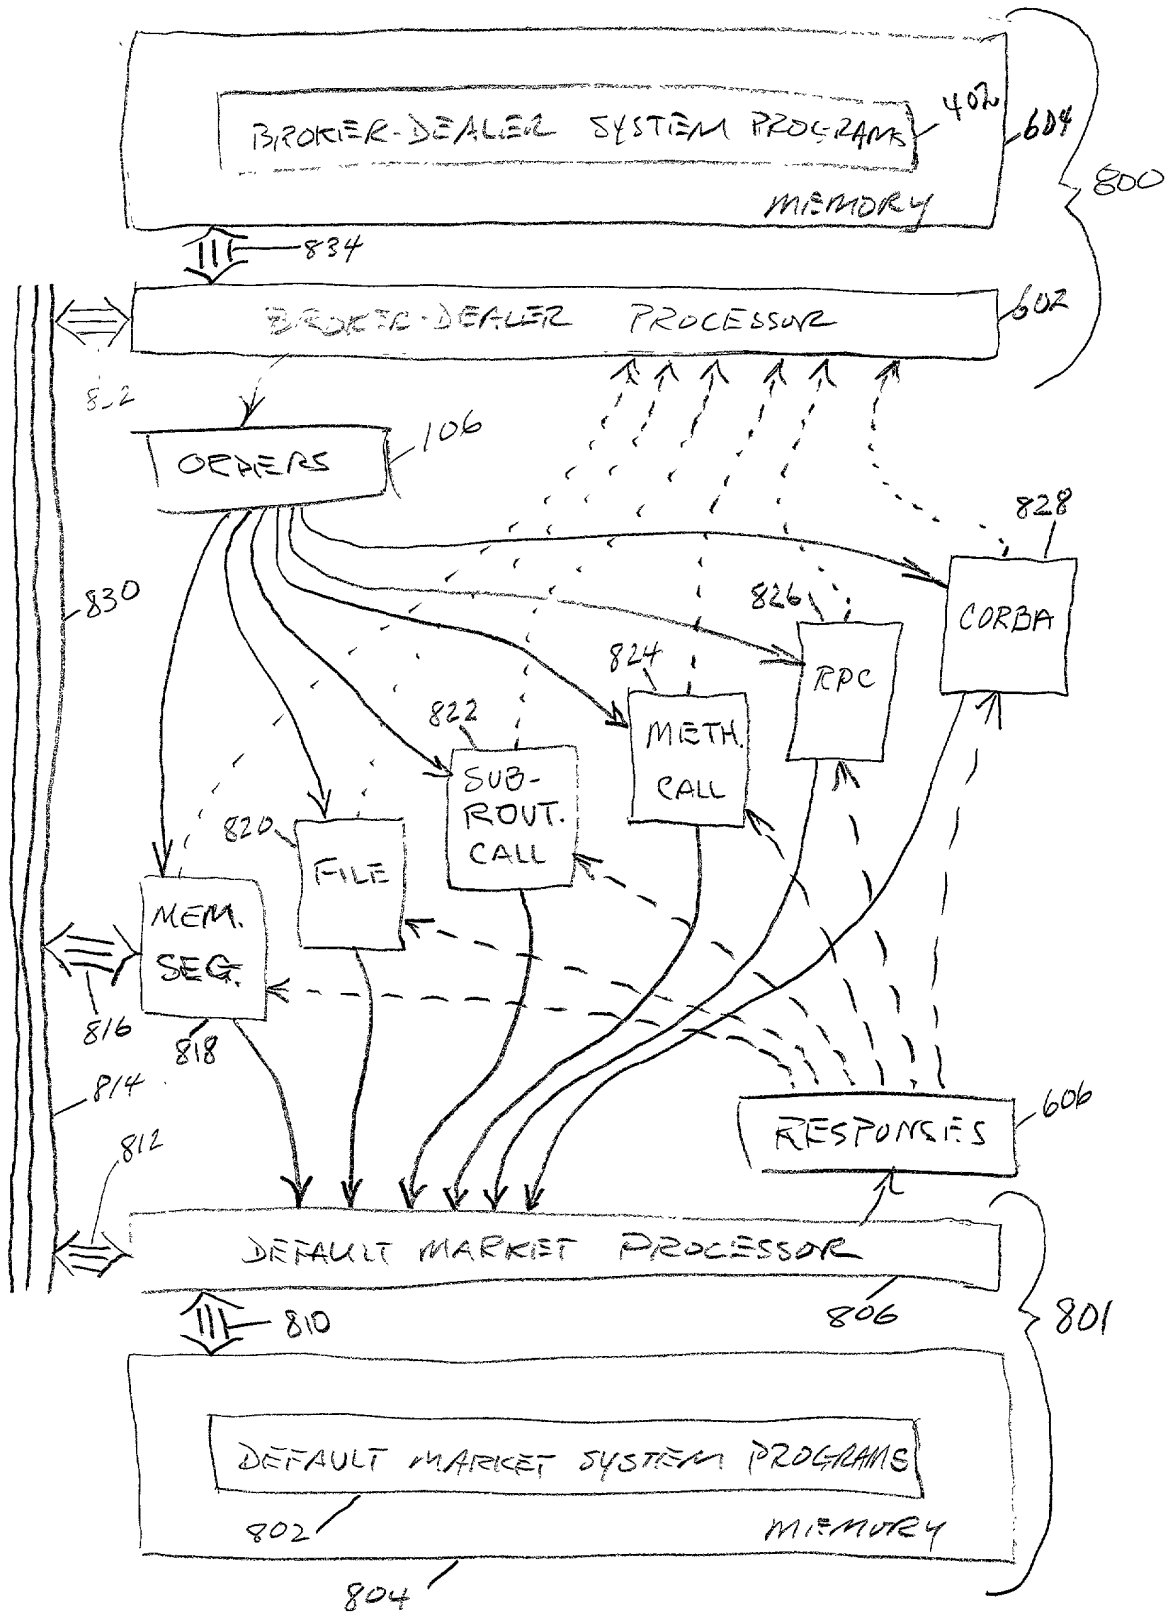 BROKER-DEALER SYSTEM PROGRAMS
402
604
MEMORY
800
834
BROKER-DEALER PROCESSOR
602
ORDERS
106
828
830
826
CORBA
824
RPC
822
METH.
CALL
SUB-
ROUT.
CALL
820
FILE
MEM.
SEG.
816
818
814
606
RESPONSES
812
DEFAULT MARKET PROCESSOR
806
810
801
DEFAULT MARKET SYSTEM PROGRAMS
802
MEMORY
804